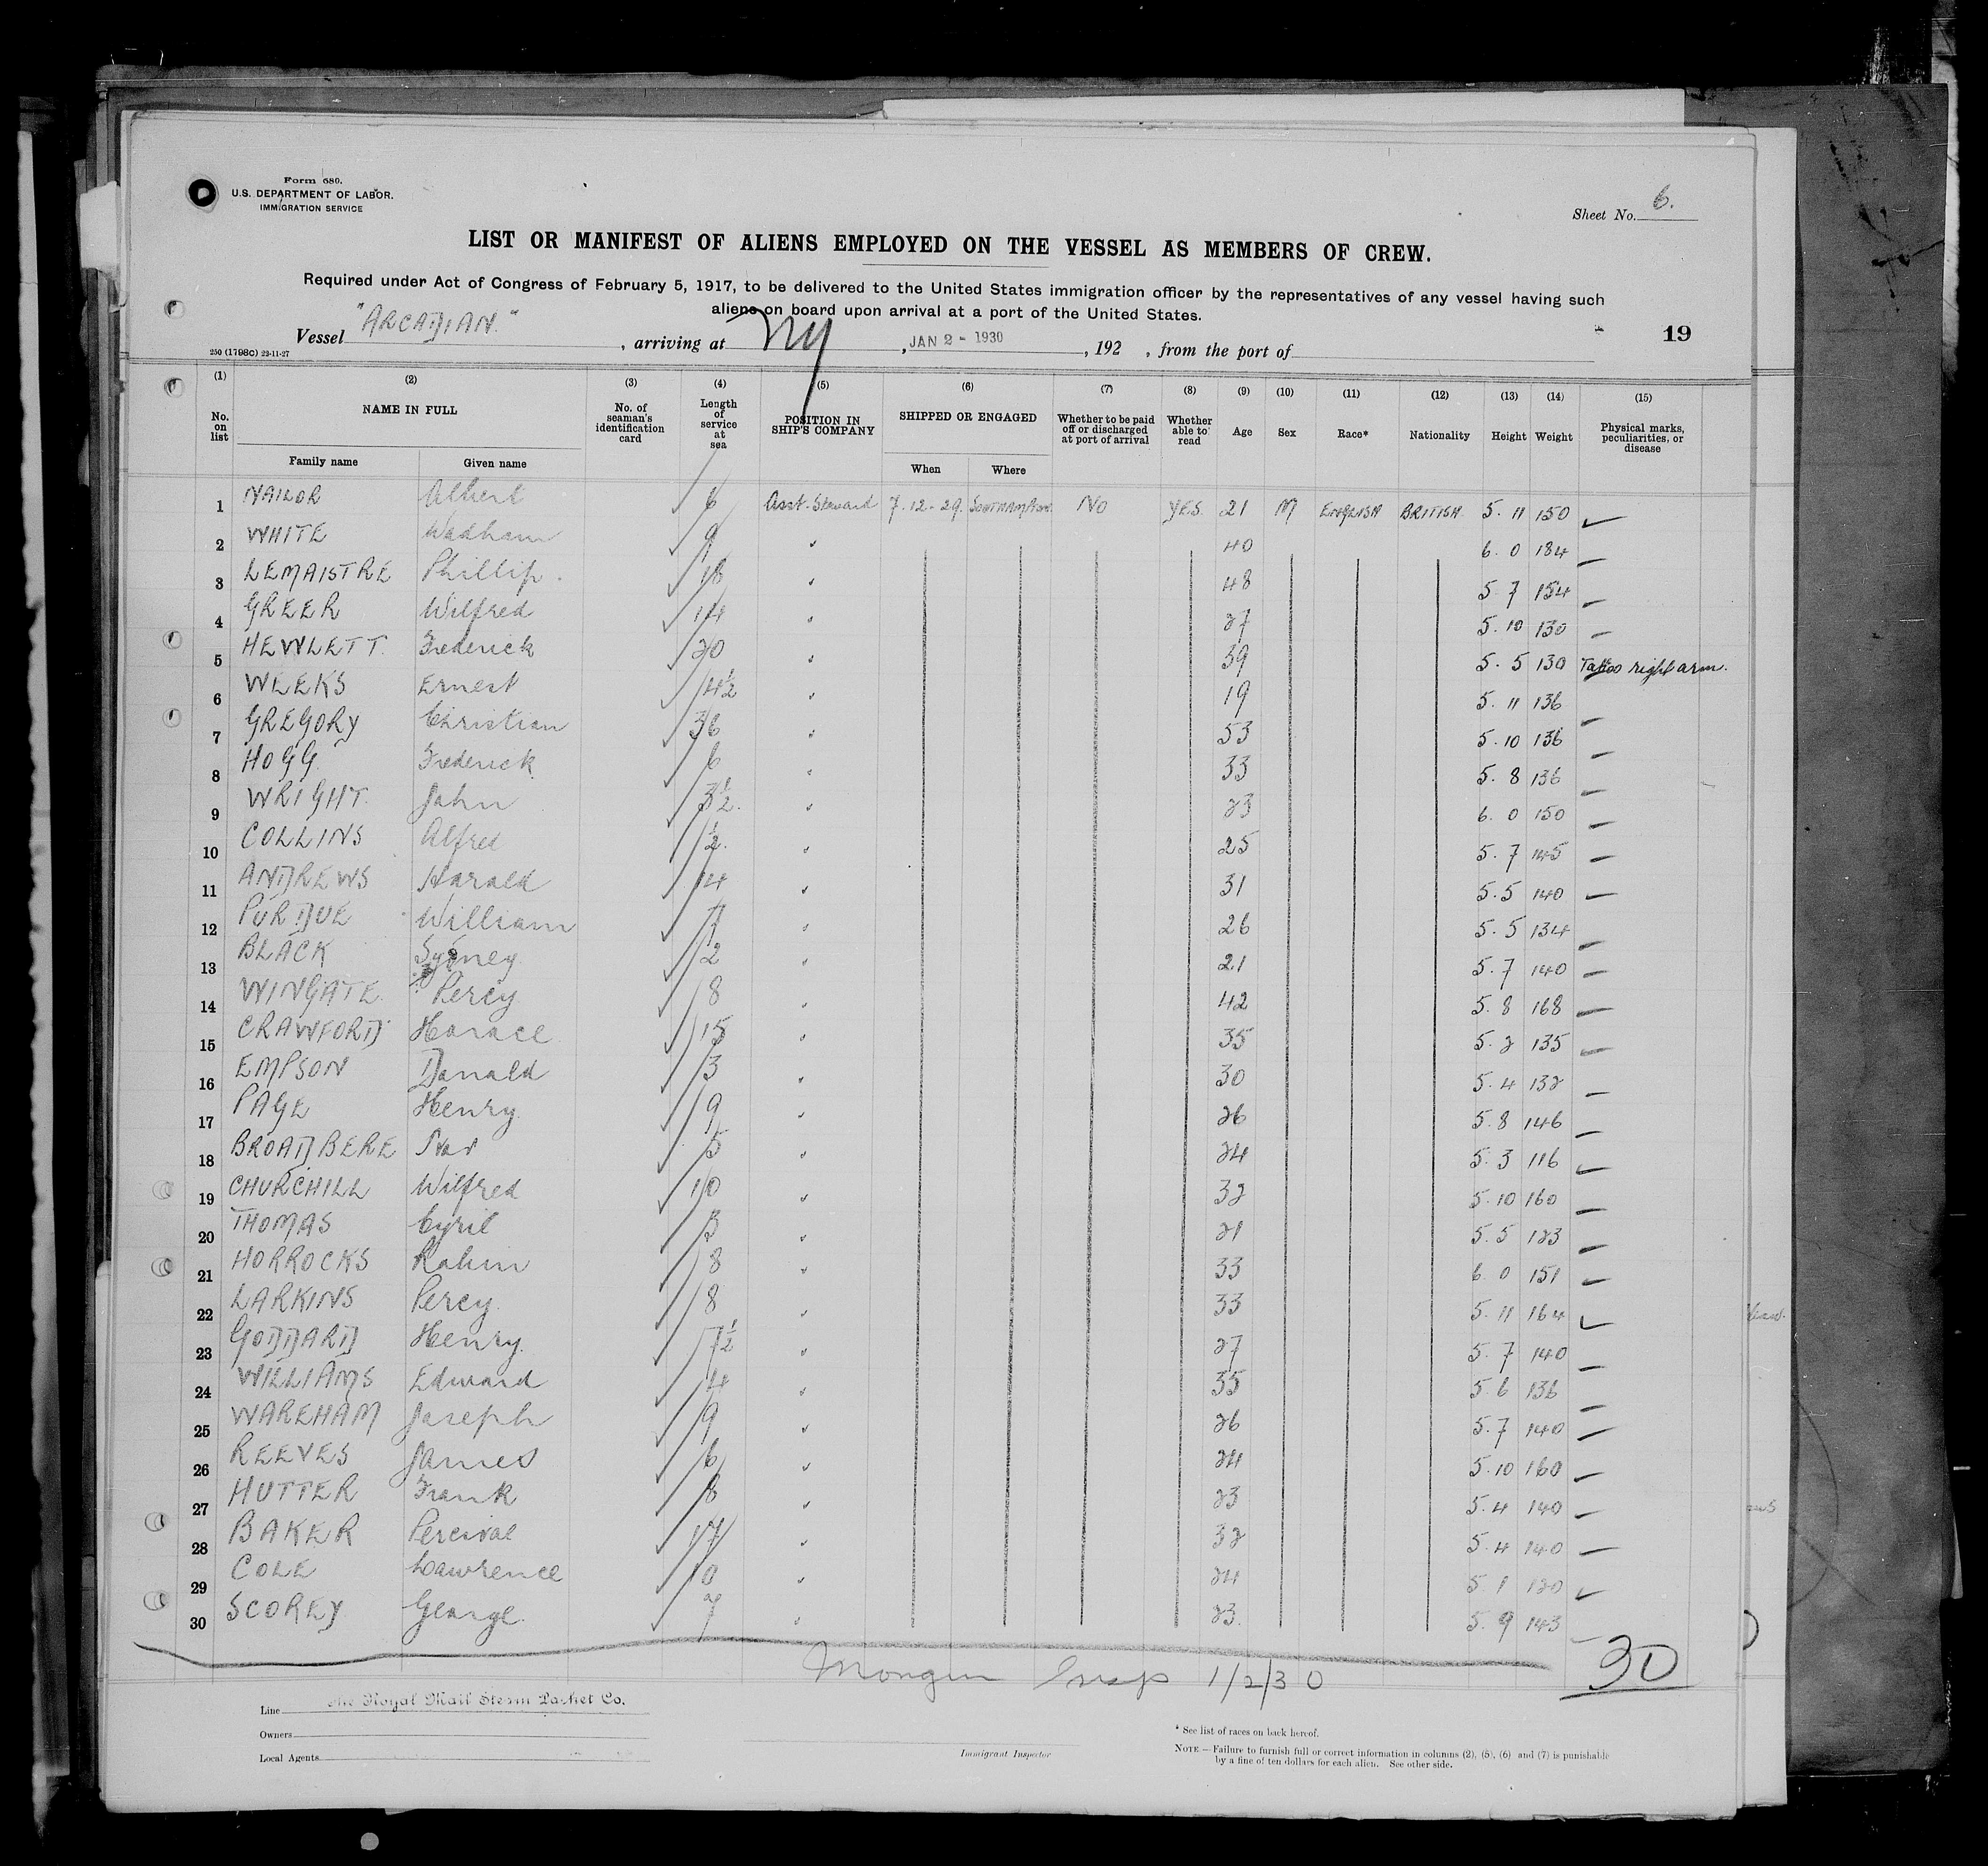 Form 680.
U.S. DEPARTMENT OF LABOR.
IMMIGRATION SERVICE
Sheet No. 6.
LIST OR MANIFEST OF ALIENS EMPLOYED ON THE VESSEL AS MEMBERS OF CREW.
Required under Act of Congress of February 5, 1917, to be delivered to the United States immigration officer by the representatives of any vessel having such
aliens on board upon arrival at a port of the United States.
19
Vessel "ARCADIAN", arriving at NY, JAN 2 - 1930, 192 , from the port of
250 (1798c) 22-11-27
(1) (2) (3) (4) (5) (6) (7) (8) (9) (10) (11) (12) (13) (14) (15)
No. on list NAME IN FULL No. of seaman's identification card Length of service at sea POSITION IN SHIP'S COMPANY SHIPPED OR ENGAGED Whether to be paid off or discharged at port of arrival Whether able to read Age Sex Race* Nationality Height Weight Physical marks, peculiarities, or disease
Family name Given name When Where
1 NAILOR Albert 6 Asst. Steward 7.12.29. Southampton NO YES. 21 M ENGLISH BRITISH 5. 11 150
2 WHITE Wadham 9 " 40 6. 0 184
3 LEMAISTRE Phillip. 18 " 48 5 7 154
4 GREER Wilfred 14 " 27 5. 10 130
5 HEWLETT. Frederick 20 " 39 5. 5 130 Tattoo right arm.
6 WEEKS Ernest 4½ " 19 5. 11 136
7 GREGORY Christian 36 " 53 5. 10 136
8 HOGG Frederick 6 " 33 5. 8 136
9 WRIGHT. John 3½. " 23 6. 0 150
10 COLLINS Alfred ½. " 25 5. 7 145
11 ANDREWS Harald 14 " 31 5. 5 140
12 PURDUE William " 26 5. 5 134
13 BLACK Sydney 2 " 21 5. 7 140
14 WINGATE Percy 8 " 42 5. 8 168
15 CRAWFORD Horace 15 " 35 5. 2 135
16 EMPSON Donald 3 " 30 5. 4 132
17 PAGE Henry. 9 " 26 5. 8 146
18 BROADBERE 5 " 24 5. 3 116
19 CHURCHILL Wilfred 10 " 32 5. 10 160
20 THOMAS Cyril 3 " 21 5. 5 123
21 HORROCKS Robin 8 " 33 6. 0 151
22 LARKINS Percy 8 " 33 5. 11 164
23 GODDARD Henry. 7½ " 27 5. 7 140
24 WILLIAMS Edward 4 " 35 5. 6 136
25 WAREHAM Joseph 9 " 26 5. 7 140
26 REEVES James 6 " 24 5. 10 160
27 HUTTER Frank 8 " 23 5. 4 140
28 BAKER Percival 17 " 32 5. 4 140
29 COLE Lawrence 10 " 24 5. 1 120
30 SCOREY George. 7 " 23. 5. 9 143
Mongin Insp 1/2/30 30
Line The Royal Mail Steam Packet Co.
Owners
Local Agents
Immigrant Inspector
* See list of races on back hereof.
NOTE.—Failure to furnish full or correct information in columns (2), (5), (6) and (7) is punishable
by a fine of ten dollars for each alien. See other side.